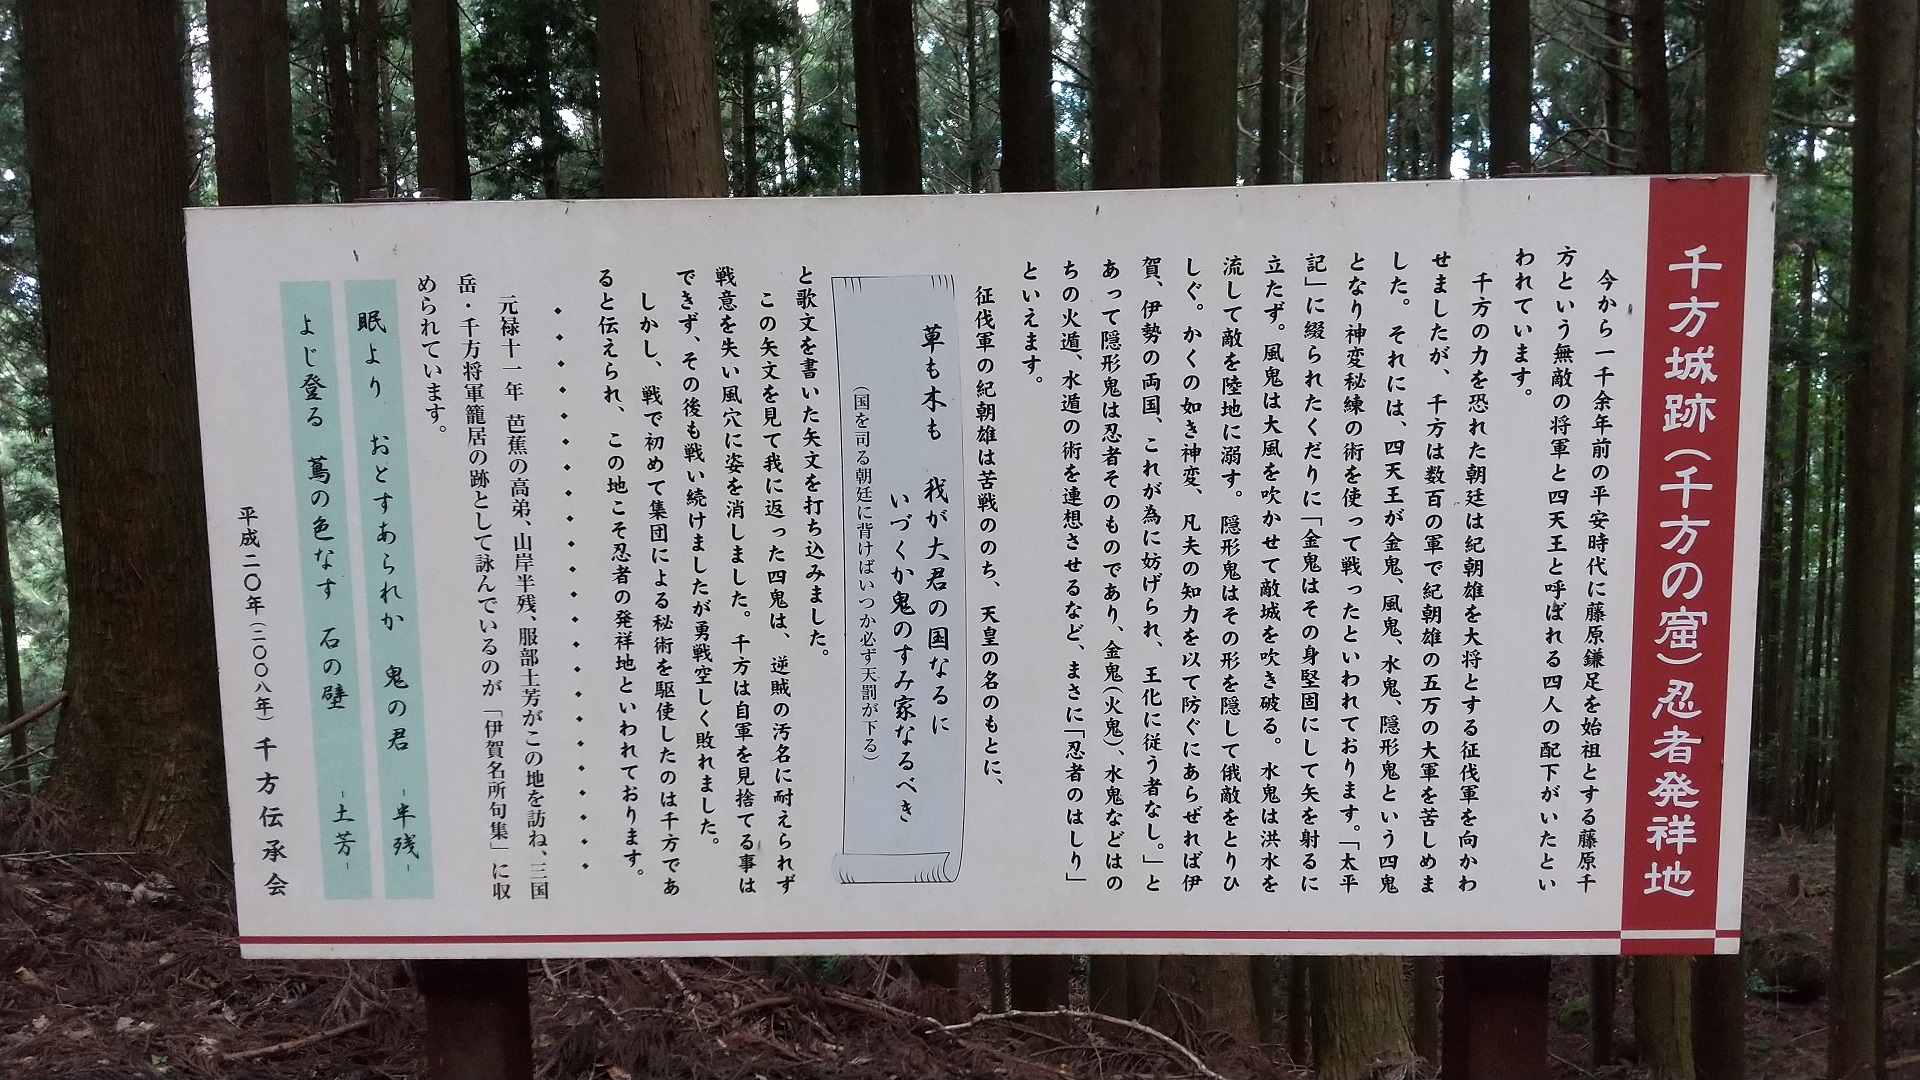 千方城跡(千方の窟)忍者発祥地
今から一千余年前の平安時代に藤原鎌足を始祖とする藤原千
方という無敵の将軍と四天王と呼ばれる四人の配下がいたとい
われています。
千方の力を恐れた朝廷は紀朝雄を大将とする征伐軍を向かわ
せましたが、千方は数百の軍で紀朝雄の五万の大軍を苦しめま
した。それには、四天王が金鬼、風鬼、水鬼、隠形鬼という四鬼
となり神変秘練の術を使って戦ったといわれております。「太平
記」に綴られたくだりに「金鬼はその身堅固にして矢を射るに
立たず。風鬼は大風を吹かせて敵城を吹き破る。水鬼は洪水を
流して敵を陸地に溺す。隠形鬼はその形を隠して俄敵をとりひ
しぐ。かくの如き神変、凡夫の知力を以て防ぐにあらぜれば伊
賀、伊勢の両国、これが為に妨げられ、王化に従う者なし。」と
あって隠形鬼は忍者そのものであり、金鬼(火鬼)、水鬼などはの
ちの火遁、水遁の術を連想させるなど、まさに「忍者のはしり」
といえます。
征伐軍の紀朝雄は苦戦ののち、天皇の名のもとに、
草も木も 我が大君の国なるに
いづくか鬼のすみ家なるべき
(国を司る朝廷に背けばいつか必ず天罰が下る)
と歌文を書いた矢文を打ち込みました。
この矢文を見て我に返った四鬼は、逆賊の汚名に耐えられず
戦意を失い風穴に姿を消しました。千方は自軍を見捨てる事は
できず、その後も戦い続けましたが勇戦空しく敗れました。
しかし、戦で初めて集団による秘術を駆使したのは千方であ
ると伝えられ、この地こそ忍者の発祥地といわれております。
元禄十一年 芭蕉の高弟、山岸半残、服部土芳がこの地を訪ね、三国
岳・千方将軍籠居の跡として詠んでいるのが「伊賀名所句集」に収
められています。
眠より おとすあられか 鬼の君 -半残-
よじ登る 蔦の色なす 石の壁 -土芳-
平成二〇年(二〇〇八年) 千方伝承会